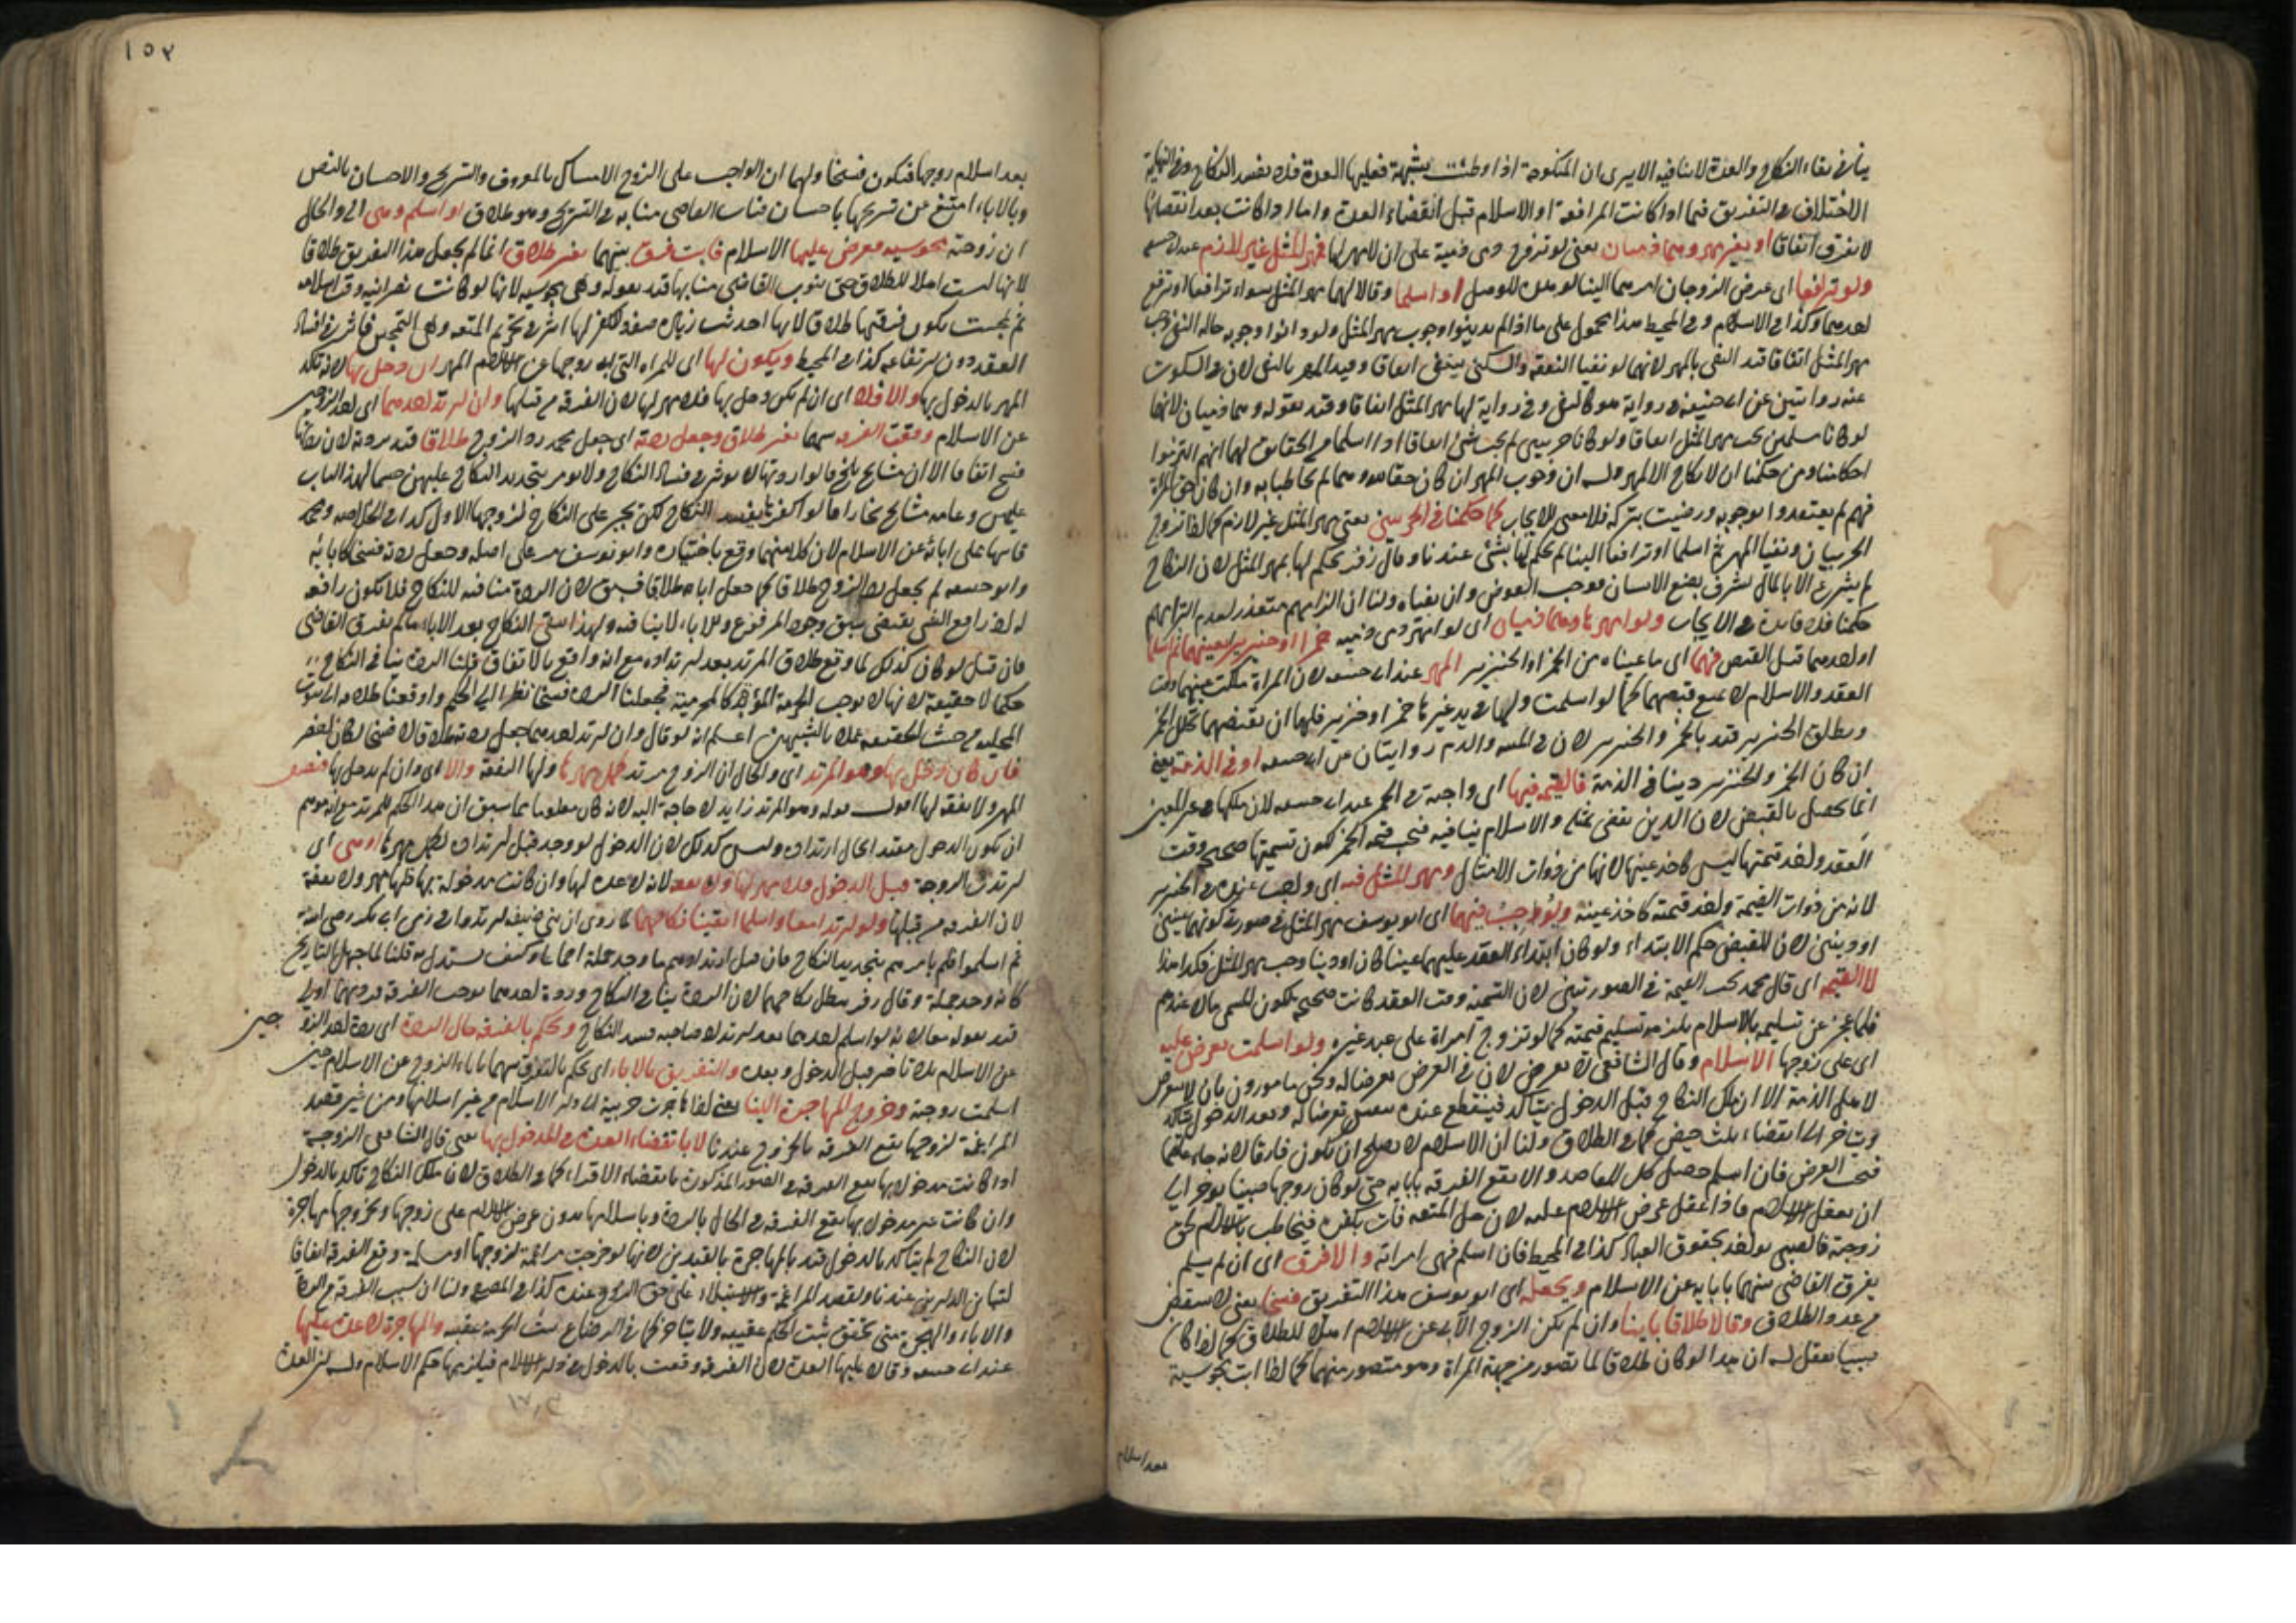 ينافي بقاء النكاح والعدة لا تنافيه الا يرى ان المنكوحة اذا وطئت بشبهة فعليها العدة فلا يفسد النكاح وفي النهاية
الاختلاف في التفريق فيما اذا كانت المرافعة او الاسلام قبل انقضاء العدة واما اذا كانت بعد انقضائها
لا يفرق اتفاقا او بغير مهر وهما ذميان يعني لو تزوج ذمي ذمية على ان لا مهر لها فمهر المثل غير لازم عند ابي حنيفة
ولو ترافعا اي عرض الزوجان امرهما الينا لو هذه للوصل او اسلما وقالا لها مهر المثل سواء ترافعا او ترفع
احدهما وكذا في الاسلام وفي المحيط هذا محمول على ما اذا لم يدينوا وجوب مهر المثل ولو دانوا وجوبه حالة النفي وجب
مهر المثل اتفاقا قيد النفي بالمهر لانهما لو نفيا النفقة والسكنى ينتفي اتفاقا وقيد المهر بالنفي لان في السكوت
عنه روايتين عن ابي حنيفة في رواية هو كالنفي وفي رواية لها مهر المثل اتفاقا وقيد بقوله وهما ذميان لانهما
لو كانا مسلمين يجب مهر المثل اتفاقا ولو كانا حربيين لم يجب شئ اتفاقا اذا اسلما في الحقايق لهما انهم التزموا
احكامنا ومن حكمنا ان لا نكاح الا بمهر وله ان وجوب المهر ان كان حقا لله وهما لم يخاطبا به وان كان حق المرأة
فهم لم يعتقدوا وجوبه ورضيت بتركه فلا معنى للايجاب كما حكمنا في الحربيين يعني مهر المثل غير لازم كما اذا تزوج
الحربيان ونفيا المهر ثم اسلما او ترافعا الينا لم يحكم لها بشئ عندنا وقال زفر يحكم لها بمهر المثل لان النكاح
لم يشرع الا بالمال لشرف بضع الانسان فوجب العوض وان نفياه ولنا ان الزامهم متعذر لعدم التزامهم
حكمنا فلا فائدة في الايجاب ولو امهرها وهما ذميان اي لو امهر ذمي ذمية خمرا او خنزيرا بعينهما ثم اسلما
او احدهما قبل القبض فهما اي ما عيناه من الخمر او الخنزير المهر عند ابي حنيفة لان المرأة ملكت عينهما وقت
العقد والاسلام لا يمنع قبضهما كما لو اسلمت ولها في يد غيرها خمر او خنزير فلها ان تقبضهما تخلل الخمر
ويطلق الخنزير قيد بالخمر والخنزير لان في الميتة والدم روايتان عن ابي حنيفة او في الذمة يعني
ان كان الخمر والخنزير دينا في الذمة فالقيمة فيها اي واجبة في الخمر عند ابي حنيفة لان ملكها في غير المعين
انما يحصل بالقبض لان الدين يقضى بمثله والاسلام ينافيه فتجب قيمة الخمر لكون تسميتها صحيحة وقت
العقد واخذ قيمتها ليس كاخذ عينها لانها من ذوات الامثال ومهر المثل فيه اي واجب عنده في الخنزير
لانه من ذوات القيمة واخذ قيمته كاخذ عينه ويوجبه فيهما اي ابو يوسف مهر المثل في صورة كونهما عينين
او دينين لان للقبض حكم الابتداء ولو كان ابتداء العقد عليهما عينا كان او دينا وجب مهر المثل فكذا هذا
لا القيمة اي قال محمد تجب القيمة في الصورتين لان التسمية وقت العقد كانت صحيحة لكون المسمى مالا عندهم
فلما عجز عن تسليمه بالاسلام يلزمه تسليم قيمته كما لو تزوج امراة على عبد غيره ولو اسلمت يعرض عليه
اي على زوجها الاسلام وقال الشافعي لا يعرض لان في العرض تعرضا له ونحن مامورون بان لا نتعرض
لاهل الذمة الا ان ملك النكاح قبل الدخول يتأكد فينقطع عنده بنفس تعرضا له وبعد الدخول تأكد
ويتاخر الى انقضاء ثلث حيض كما في الطلاق ولنا ان الاسلام لا يصلح ان يكون فارقا لانه جاء
فيجب العرض فان اسلم حصل كل المقاصد والا يقع الفرقة بابايه حتى لو كان زوجها صبيا يؤخر الى
ان يعقل الاسلام فاذا عقل عرض الاسلام عليه لان حل المتعة فات بكفره فيخاطب بالاسلام لحق
زوجته فالصبي يؤاخذ بحقوق العباد كذا في المحيط فان اسلم فهي امراته والا فرق اي ان لم يسلم
يفرق القاضي بينهما بابايه عن الاسلام ويجعله اي ابو يوسف هذا التفريق فسخا يعني لا ينتقض
به عدد الطلاق وقالا طلاقا باينا وان لم يكن الزوج الآبي عن الاسلام اهلا للطلاق كما اذا كان
صبيا يعقل له ان هذا لو كان طلاقا لما تصور من جهة المراة وهو متصور منهما كما اذا ابت مجوسية
بعد اسلام
١٥٢
بعد اسلام زوجها فتكون فسخا ولهما ان الواجب على الزوج الامساك بالمعروف والتسريح والاحسان بالنص
وبالاباء امتنع عن تسريحها باحسان فناب القاضي منابه في التسريح وهو طلاق او اسلم وهي اي والحال
ان زوجته مجوسية فعرض عليها الاسلام فابت فرق بينهما بغير طلاق انما لم يجعل هذا التفريق طلاقا
لانها ليست اهلا للطلاق حتى ينوب القاضي منابها قيد بقوله وهي مجوسية لانها لو كانت نصرانية وقت اسلامه
ثم تمجست يكون فرقتها طلاقا لانها احدثت زيادة صفة الكفر لها اثر في تحريم المتعة وهي التمجس فاثر في افساد
العقد دون ارتفاعه كذا في المحيط ويكون لها اي للمراة التي ابى زوجها عن الاسلام المهر ان دخل بها لانه تأكد
المهر بالدخول بها والا فلا اي ان لم يكن دخل بها فلا مهر لها لان الفرقة من قبلها وان ارتد احدهما اي احد الزوجين
عن الاسلام وقعت الفرقة بينهما بغير طلاق وجعل ردته اي جعل محمد ردة الزوج طلاقا قيد بردته لان ردتها
فسخ اتفاقا الا ان مشايخ بلخ قالوا ردتها لا يؤثر في فساد النكاح ولا يؤمر بتجديد النكاح عليهن حسما لهذا الباب
عليهن وعامة مشايخ بخارا قالوا كفرها يفسد النكاح لكن يجبر على النكاح لزوجها الاول كذا في الخلاصة ومحمد
قاسها على ابائه عن الاسلام لان كلا منهما وقع باختياره وابو يوسف مر على اصله وجعل ردته فسخا كابائه
وابو حنيفة لم يجعل ردة الزوج طلاقا كما جعل اباءه طلاقا فرق لان الردة منافية للنكاح فلا تكون رافعة
له اذ رافع الشئ يقتضي سبق وجود المرفوع والاباء لا ينافيه ولهذا يبقى النكاح بعد الاباء ما لم يفرق القاضي
فان قيل لو كان كذلك لما وقع طلاق المرتد بعد ارتداده مع انه واقع بالاتفاق قلنا الردة ينافي النكاح
حكما لا حقيقة لانها لا يوجب الحرمة المؤبدة كالمحرمية فجعلنا الردة فسخا نظرا الى الحكم واوقعنا طلاقه
المحلية من حيث الحقيقة عملا بالشبهين اعلم انه لو قال وان ارتد احدهما جعل ردته طلاقا لا فسخا لكان اخصر
فان كان دخل بها وهو المرتد اي والحال ان الزوج مرتد فكل مهرها ولها النفقة والا اي وان لم يدخل بها فنصف
المهر ولا نفقة لها اقول قوله وهو المرتد زايد لا حاجة اليه لانه كان معلوما مما سبق ان هذا الحكم للمرتد مع انه موهم
ان يكون الدخول مقيدا بحال ارتداده وليس كذلك لان الدخول لو وجد قبل ارتداده لكمل مهرها او هي اي
ارتدت الزوجة قبل الدخول فلا مهر لها ولا نفقة لانه لا عدة لها وان كانت مدخولة بها فلها مهر ولا نفقة
لان الفرقة من قبلها ولو ارتدا معا واسلما ابقينا نكاحهما لما روي ان بني حنيفة ارتدوا في زمن ابي بكر رضي الله عنه
ثم اسلموا فلم يامرهم بتجديد النكاح فان قيل ارتدادهم ما وجد جملة احيانا وكيف يستدل به قلنا لما جهل التاريخ
كانه وجد جملة وقال زفر يبطل نكاحهما لان الردة ينافي النكاح وردة احدهما يوجب الفرقة فردتهما اولى
قيد بقوله معا لانه لو اسلم احدهما بعد ارتداد صاحبه فسد النكاح ويحكم بالفرقة حال الردة اي ردة احد الزوجين
عن الاسلام بلا تاخير قبل الدخول وبعده والتفريق بالاباء اي يحكم بالتفرق بينهما باباء الزوج عن الاسلام حين
اسلمت زوجته وخروج المهاجرة الينا يعني اذا هاجرت حربية الى دار الاسلام من غير اسلامها ومن غير قصد
المراغمة لزوجها يقع الفرقة بالخروج عندنا لا بانقضاء العدة في المدخول بها يعني قال الشافعي الزوجية
اذا كانت مدخول بها يقع الفرقة في الصور المذكورة بانقضاء الاقراء كما في الطلاق لان ملك النكاح تأكد بالدخول
وان كانت غير مدخول بها يقع الفرقة في الحال بالردة وباسلامها بدون عرض الاسلام على زوجها وبخروجها مهاجرة
لان النكاح لم يتأكد بالدخول قيد بالمهاجرة بالقيدين لانها لو خرجت مراغمة لزوجها او مسلمة وقع الفرقة اتفاقا
لتباين الدارين عندنا ولقصد المراغمة والاستيلاء على حق الزوج عنده كذا في المصفى ولنا ان سبب الفرقة من الردة
والاباء والهجرة متى تحقق يثبت الحكم عقيبه ولا يتاخر كما في الرضاع يثبت الحرمة عقيبه والمهاجرة لا عدة عليها
عند ابي حنيفة وقالا عليها العدة لان الفرقة وقعت بالدخول في دار الاسلام فيلزمها حكم الاسلام وله ان العدة